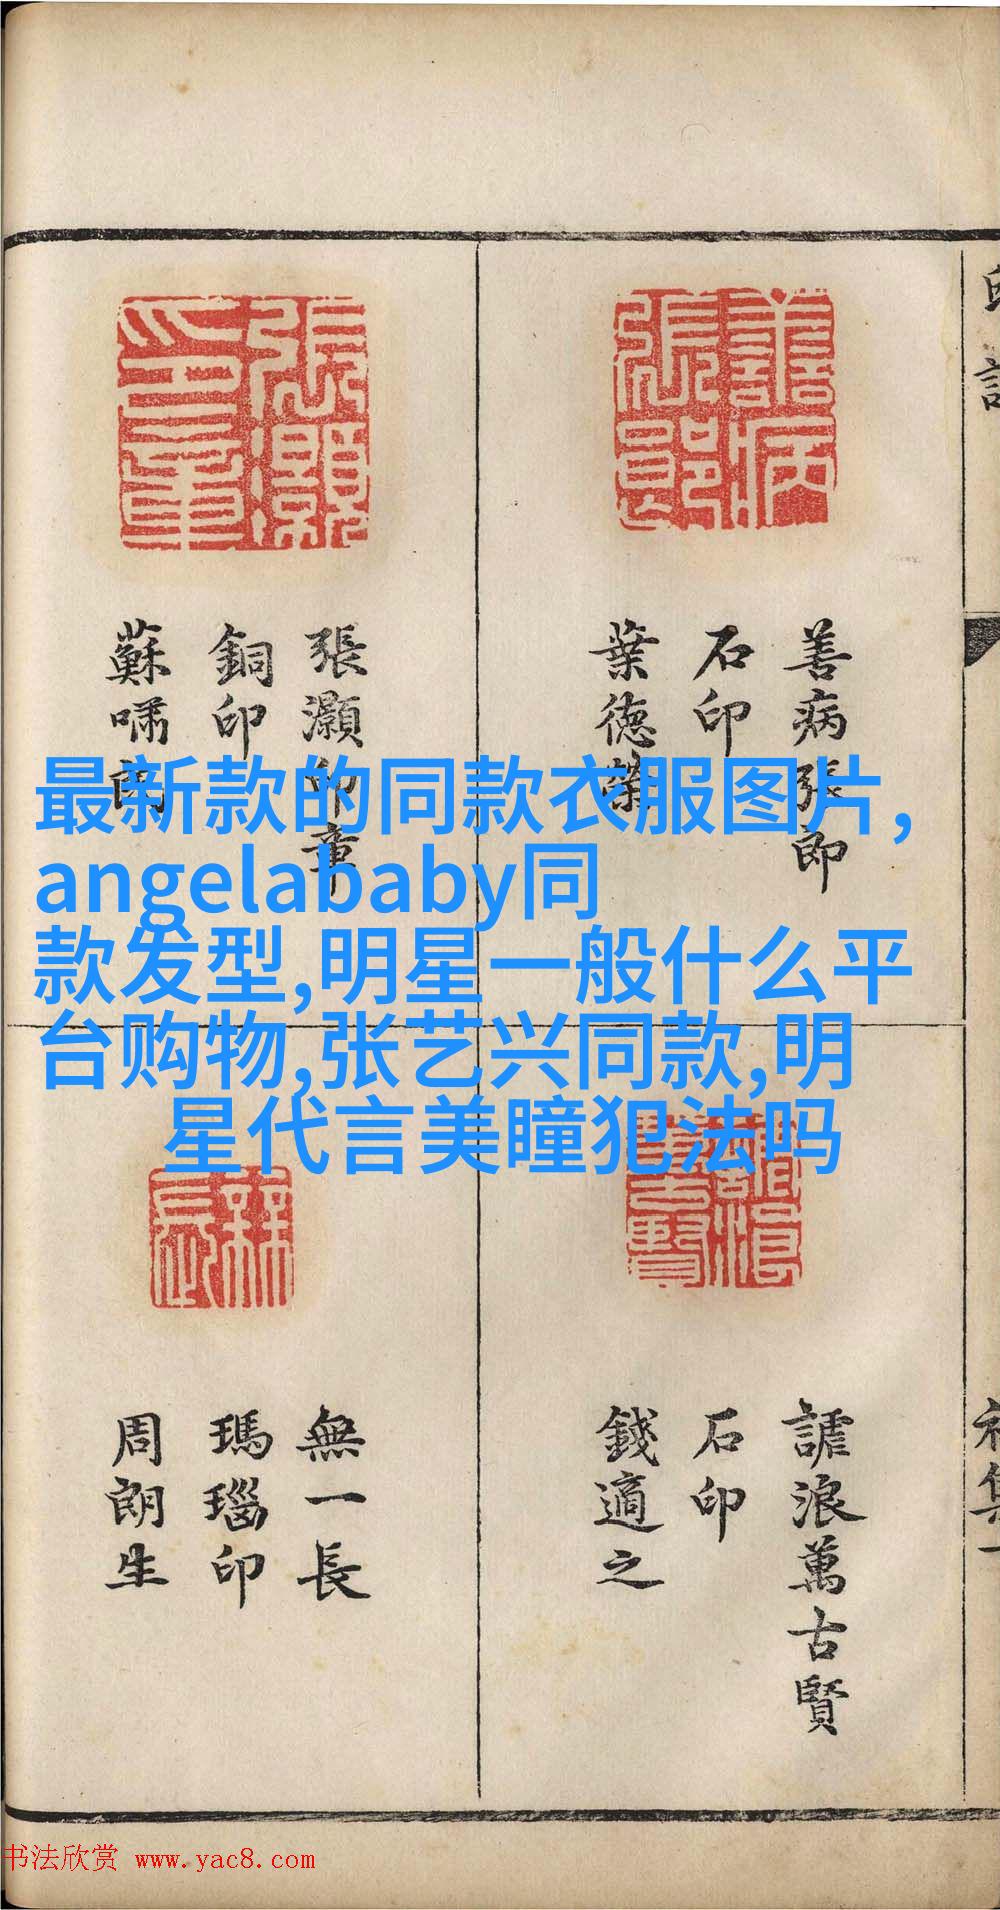 善病張郎
石印
葉德榮
張灝印章
銅印
蘇嘯
最新款的同款衣服图片,
angelababy同
款发型,明星一般什么平
台购物,张艺兴同款,明
星代言美瞳犯法吗
謔浪萬古賢
石印
錢適之
無一長
瑪瑙印
周朗生
初集一
书法欣赏 www.yac8.com